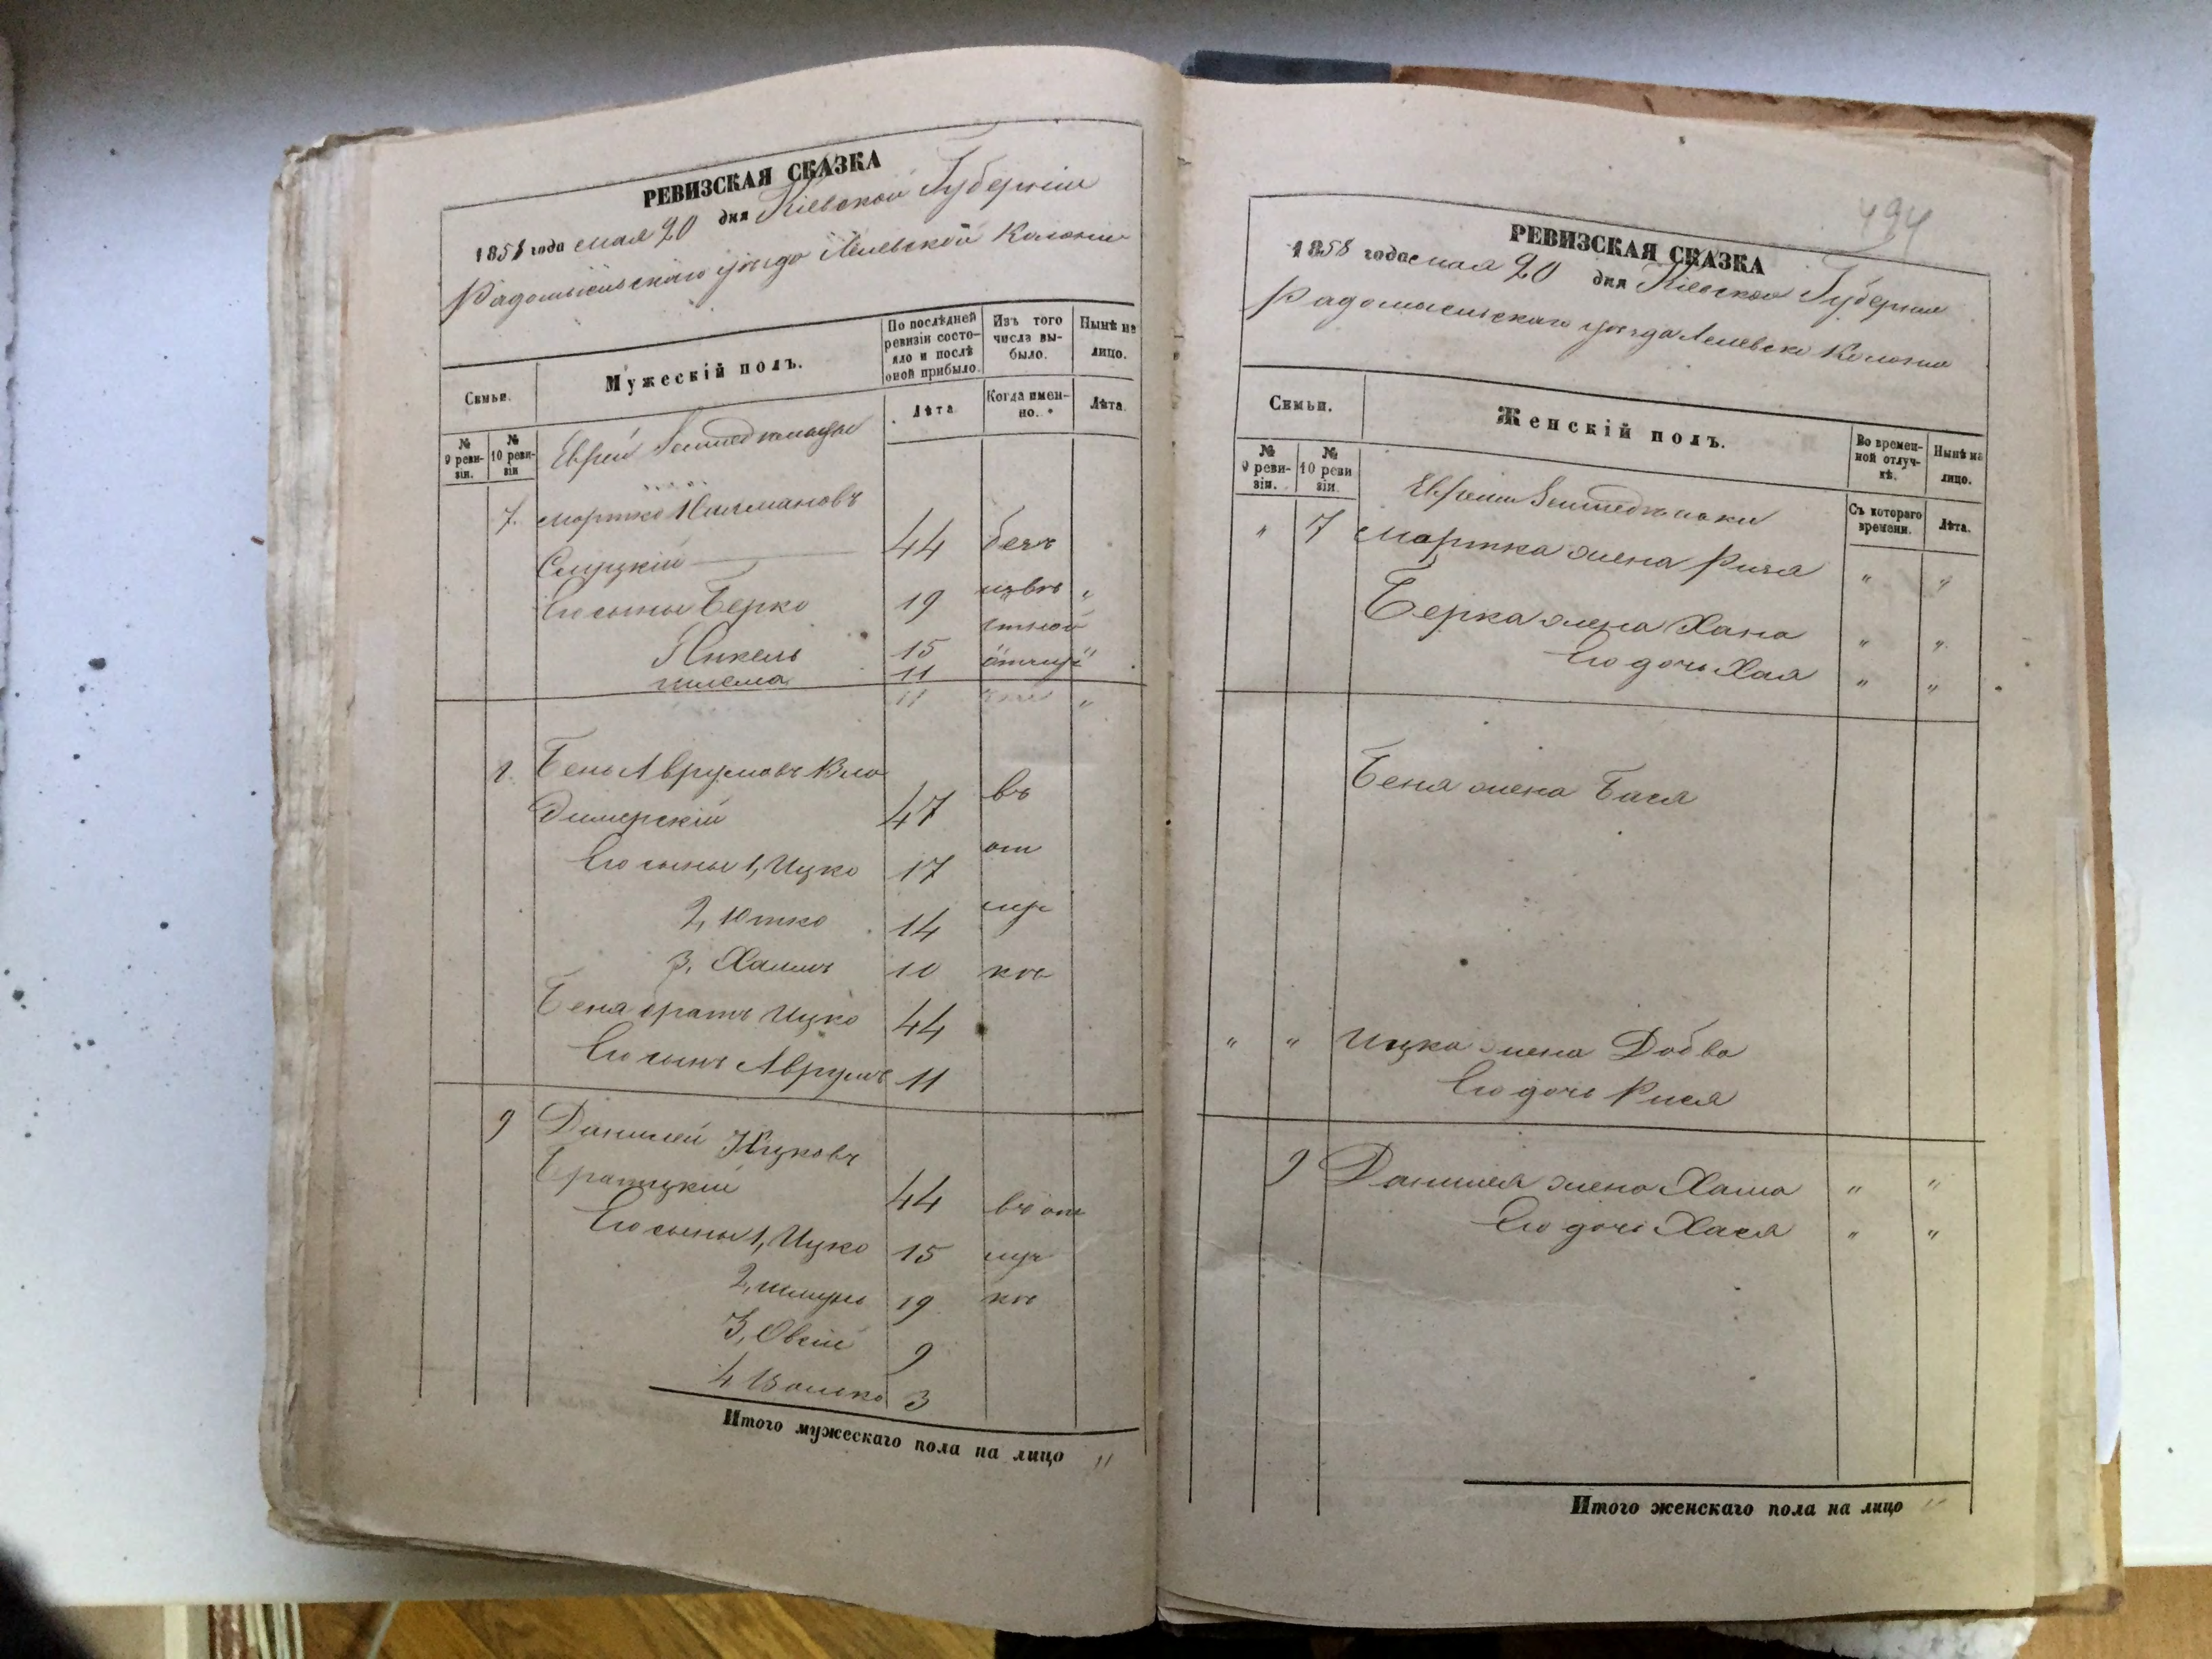 РЕВИЗСКАЯ СКАЗКА
1858 года мая 20 дня Кіевской Губерніи
Радомысльскаго уѣзда Колоніи
Семьи.
Мужескій полъ.
По послѣдней ревизіи состояло и послѣ оной прибыло.
Изъ того числа выбыло.
Нынѣ на лицо.
№ 9 ревизіи.
№ 10 ревизіи
Лѣта
Когда именно.
Лѣта.
Евреи Земледельцы
7. Мортко
Слуцкій 44 безъ
Его сыны Берко 19 извѣ "
стной
Янкель 15 отлуч
Шлема 11
11 "
Бень Аврумовъ Вла
димерскій 47 въ
от
Его сыны 1, Ицко 17
луч
2, Юшко 14
3, Хаимъ 10 кѣ
Беня братъ Ицко 44
Его сынъ Аврумъ 11
9 Данилей Ицковъ
Брацкій 44 въ от
Его сыны 1, Ицко 15 луч
2, Шмуль 19 кѣ
3, Овсій 9
4 Волько 3
Итого мужескаго пола на лицо "
494
РЕВИЗСКАЯ СКАЗКА
1858 года мая 20 дня Кіевской Губерніи
Радомысльскаго уѣзда Колоніи
Семьи.
Женскій полъ.
Во временной отлучкѣ.
Нынѣ на лицо.
№ 9 ревизіи.
№ 10 ревизіи.
Съ котораго времени.
Лѣта.
Евреи
" 7 Мортка жена " "
Берка жена Хана " "
Его дочь Хая " "
Беня жена Бася
" " Ицка жена Добва
Его дочь Рися
9 Данилея жена " "
Его дочь Хася " "
Итого женскаго пола на лицо "